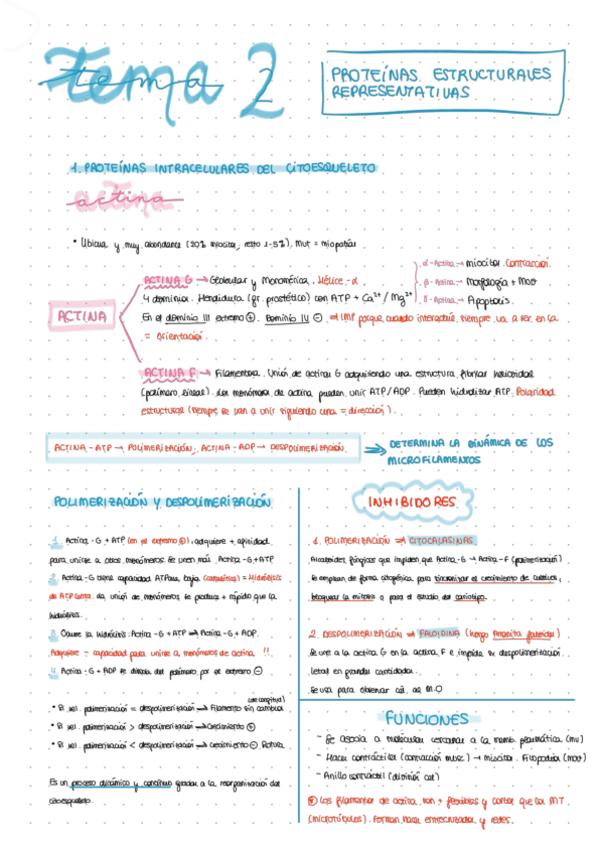 tema 2
PROTEÍNAS ESTRUCTURALES
REPRESENTATIVAS
1. PROTEÍNAS INTRACELULARES DEL CITOESQUELETO
actina
• Ubicua y muy abundante (20% miocitos, resto 1-5%), Mut = miopatías
ACTINA
ACTINA G → Globular y Monomérica. Hélice-α
4 dominios. Hendidura (gr. prostético) con ATP + Ca²⁺ / Mg²⁺
En el dominio III extremo ⊕. Dominio IV ⊖. ⇒ IMP porque cuando interactúe, siempre va a ser en la
= orientación.
α-Actina → miocitos. Contracción.
β-Actina → Morfología + Mov
γ-Actina → Apoptosis.
ACTINA F → Filamentosa. Unión de actinas G adquiriendo una estructura fibrilar helicoidal
(polímero lineal). Los monómeros de actina pueden unir ATP/ADP. Pueden hidrolizar ATP. Polaridad
estructural (siempre se van a unir siguiendo una = dirección).
ACTINA-ATP → POLIMERIZACIÓN; ACTINA-ADP → DESPOLIMERIZACIÓN
DETERMINA LA DINÁMICA DE LOS
MICROFILAMENTOS
POLIMERIZACIÓN Y DESPOLIMERIZACIÓN
1. Actina-G + ATP (en el extremo ⊕), adquiere + afinidad
para unirse a otros monómeros. Se unen más Actina-G+ATP
2. Actina-G tiene capacidad ATPasa baja = Hidrólisis
de ATP lenta. La unión de monómeros se produce + rápido que la
hidrólisis.
3. Ocurre la hidrólisis: Actina-G + ATP → Actina-G + ADP.
Adquiere - capacidad para unirse a monómeros de actina !!
4. Actina-G + ADP se disocia del polímero por el extremo ⊖
• Si vel. polimerización = despolimerización → Filamento sin cambios
(de longitud)
• Si vel. polimerización > despolimerización → Crecimiento ⊕
• Si vel. polimerización < despolimerización → Crecimiento ⊖ Rotura
Es un proceso dinámico y continuo gracias a la reorganización del
citoesqueleto.
INHIBIDORES
1. POLIMERIZACIÓN ⇒ CITOCALASINAS
Alcaloides fúngicos que impiden que Actina-G → Actina-F (polimerización)
Se emplean de forma citogénica para sincronizar el crecimiento de cultivos,
bloquear la mitosis o para el estudio del cariotipo.
2. DESPOLIMERIZACIÓN ⇒ FALOIDINA (hongo Amanita faloides)
Se une a la actina G en la actina F e impide su despolimerización.
Letal en grandes cantidades.
Se usa para observar cél. al M.O
FUNCIONES
- Se asocia a moléculas cercanas a la memb. plasmática (mv)
- Haces contráctiles (contracción musc.) → miocitos. Filopodia (mov)
- Anillo contráctil (división cel)
Los filamentos de actina son + flexibles y cortos que los MT
(microtúbulos). Forman haces entrecruzados y redes.